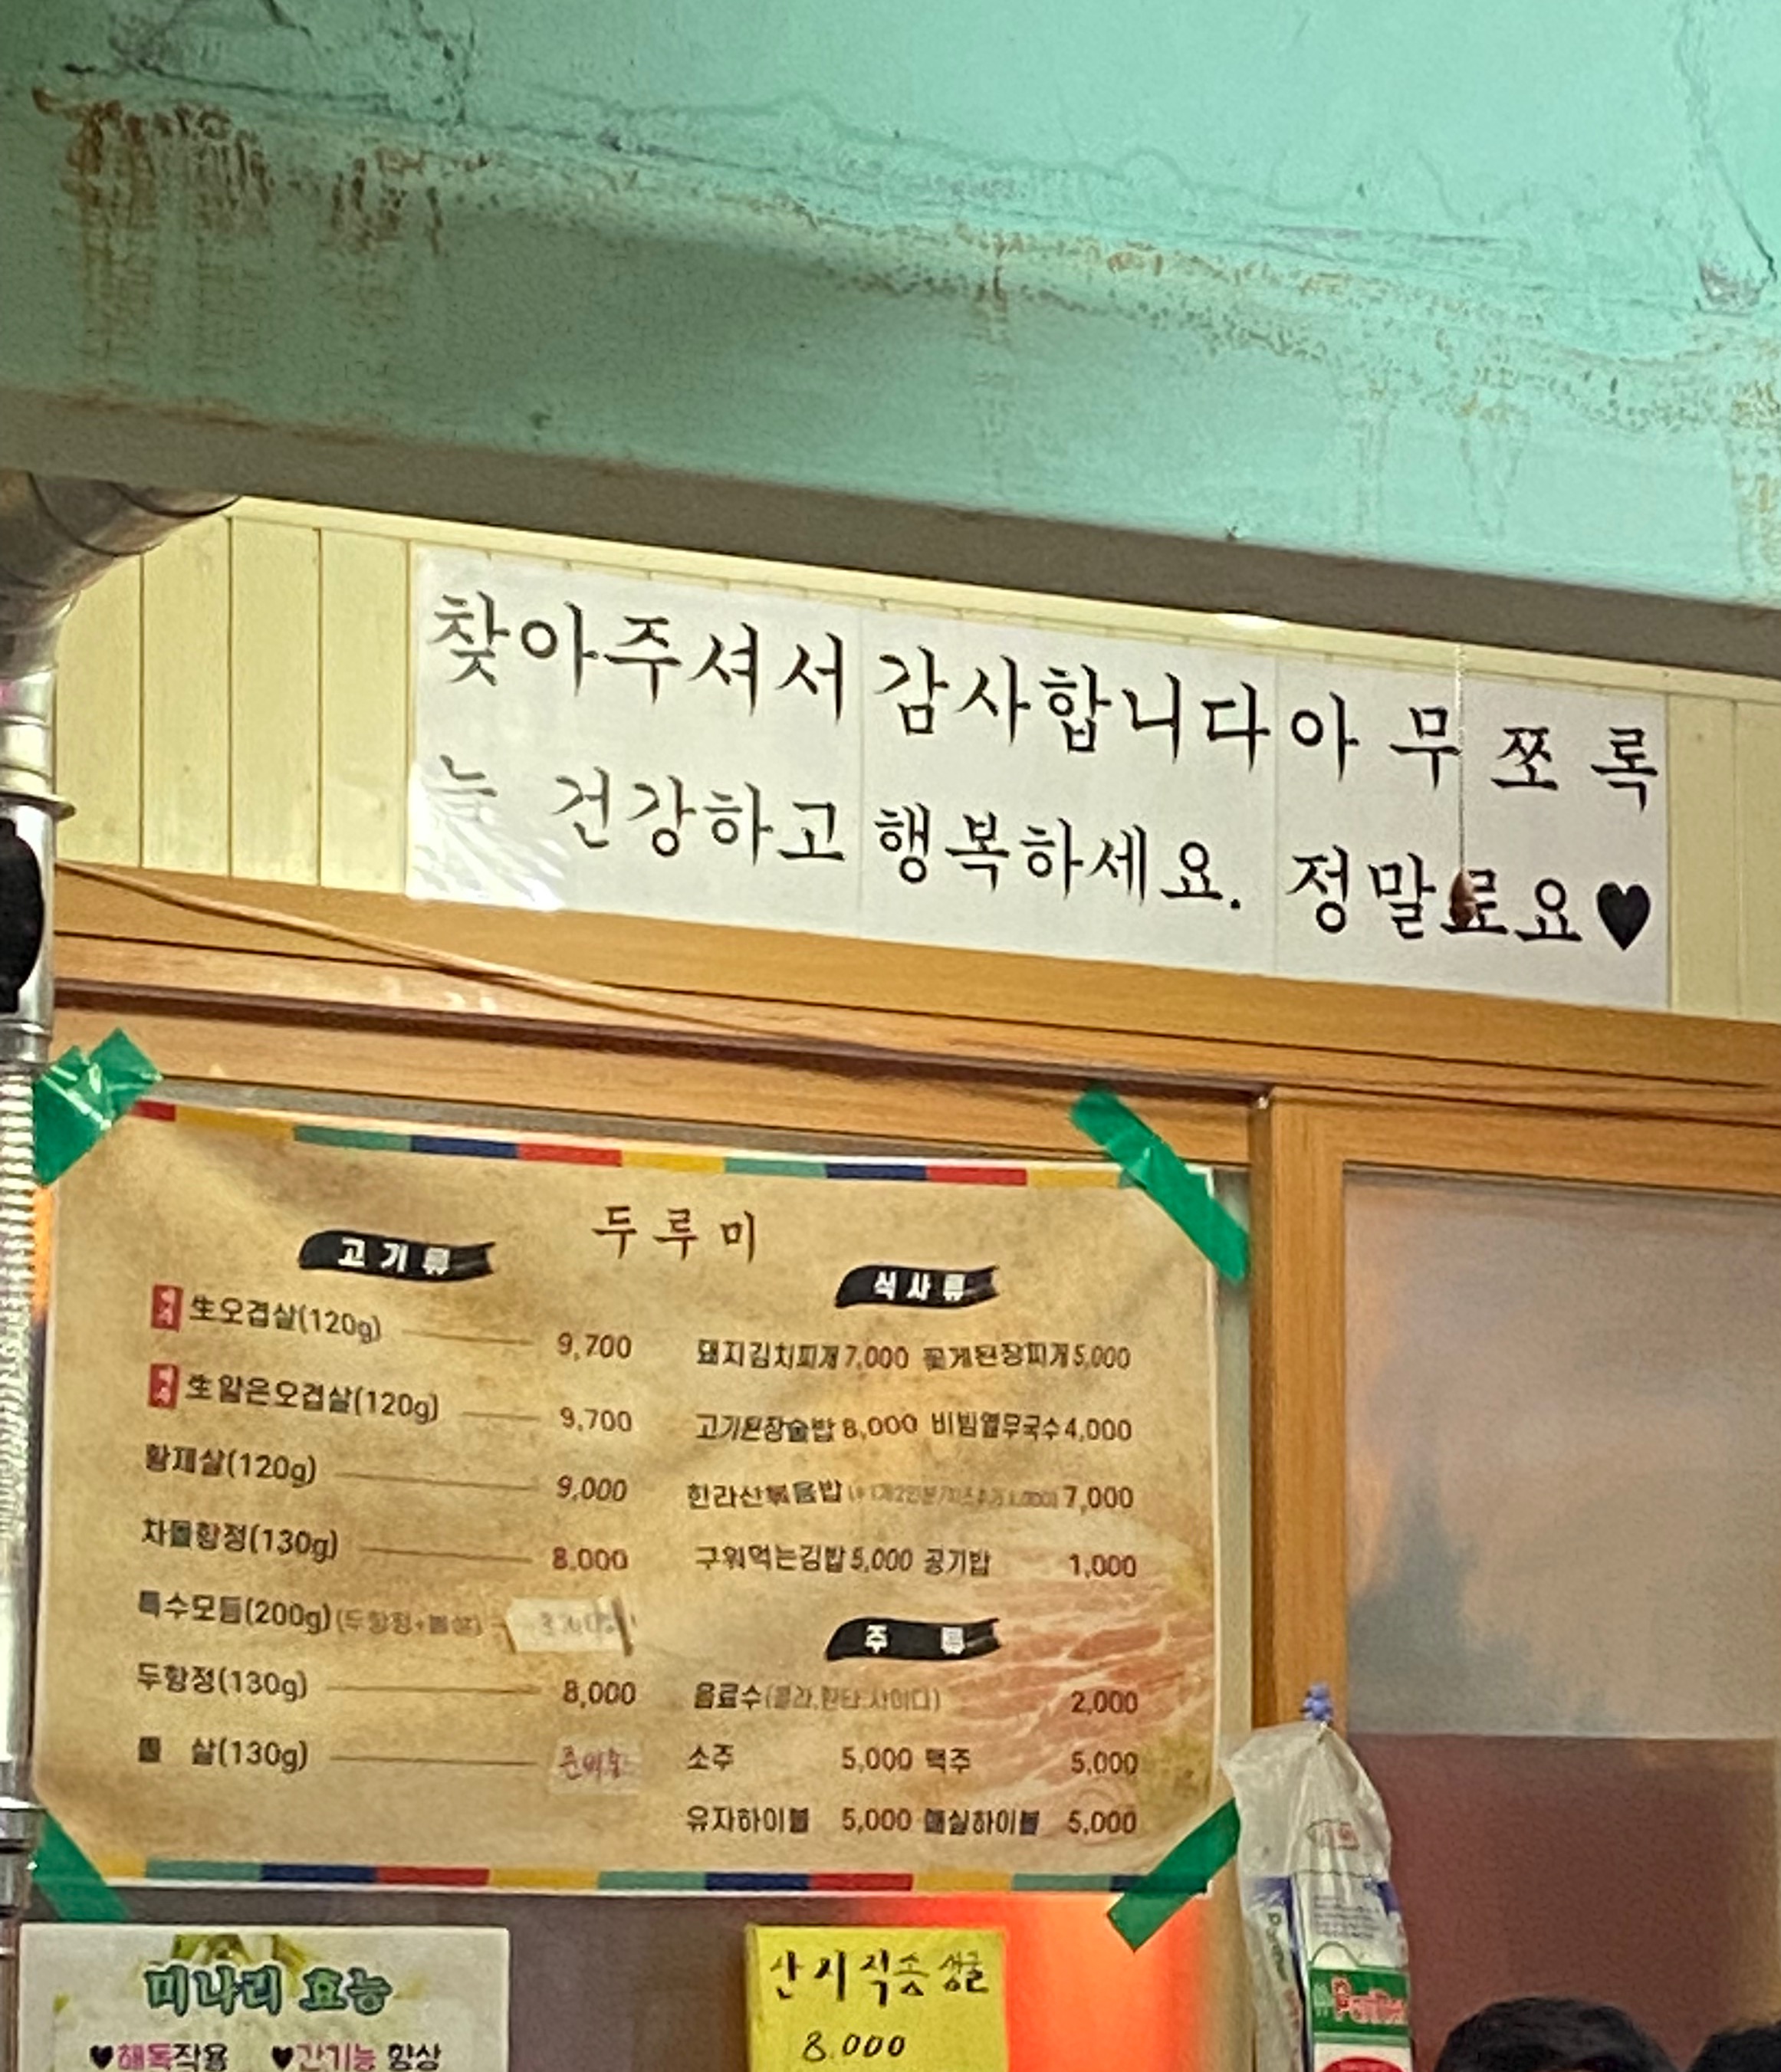 찾아주셔서 감사합니다아 무 쪼 록
늘 건강하고 행복하세요. 정말로요♥
두루미
고기류
生오겹살(120g) 9,700
生얇은오겹살(120g) 9,700
황제살(120g) 9,000
차돌항정(130g) 8,000
특수모듬(200g)(두항정+볼살)
두항정(130g) 8,000
볼 살(130g) 준비중
식사류
돼지김치찌개 7,000 꽃게된장찌개 5,000
고기된장술밥 8,000 비빔열무국수 4,000
한라산볶음밥 7,000
구워먹는김밥 5,000 공기밥 1,000
주 류
음료수(콜라,환타,사이다) 2,000
소주 5,000 맥주 5,000
유자하이볼 5,000 매실하이볼 5,000
미나리 효능
♥해독작용 ♥간기능 향상
산지직송 생굴
8.000